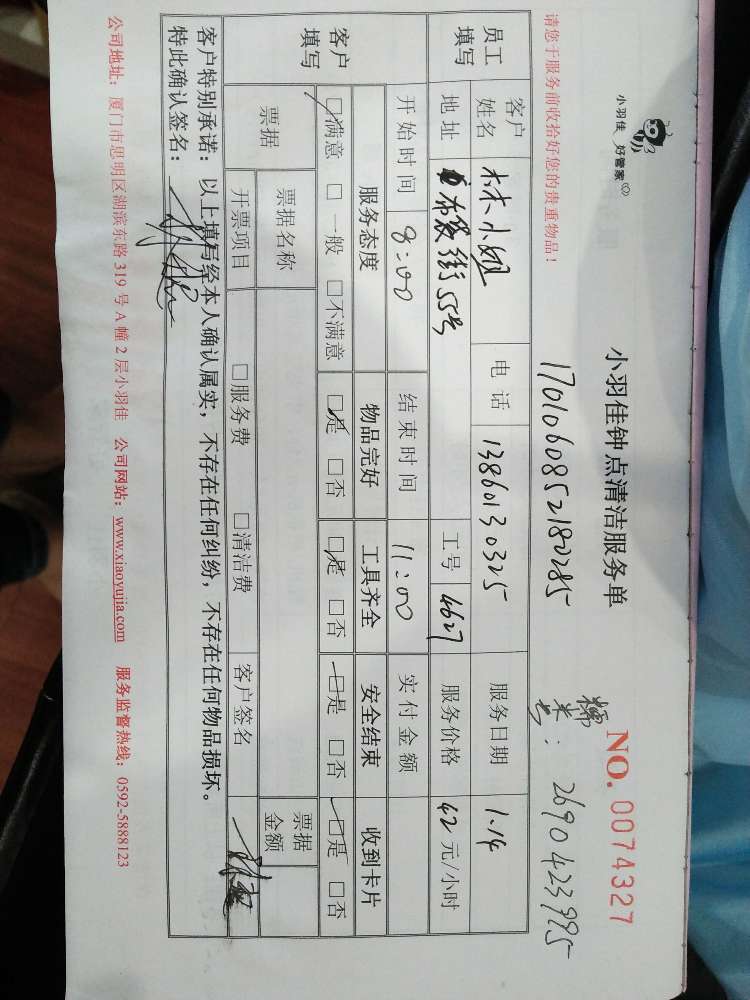 小羽佳 好管家
小羽佳钟点清洁服务单
NO. 0074327
170106085218285
糯米号: 2690423995
请您于服务前收拾好您的贵重物品!
员工填写 客户姓名 林小姐 电话 13860130325 服务日期 1.14
地址 街55号 工号 4627 服务价格 42 元/小时
开始时间 8:00 结束时间 11:00 实付金额
客户填写 服务态度 物品完好 工具齐全 安全结束 收到卡片
□满意 □一般 □不满意 □是 □否 □是 □否 □是 □否 □是 □否
票据 票据名称 票据金额
开票项目 □服务费 □清洁费 客户签名
客户特别承诺:以上填写经本人确认属实,不存在任何纠纷,不存在任何物品损坏。
特此确认签名:
公司地址:厦门市思明区湖滨东路 319 号 A 幢 2 层小羽佳 公司网站:www.xiaoyujia.com 服务监督热线:0592-5888123